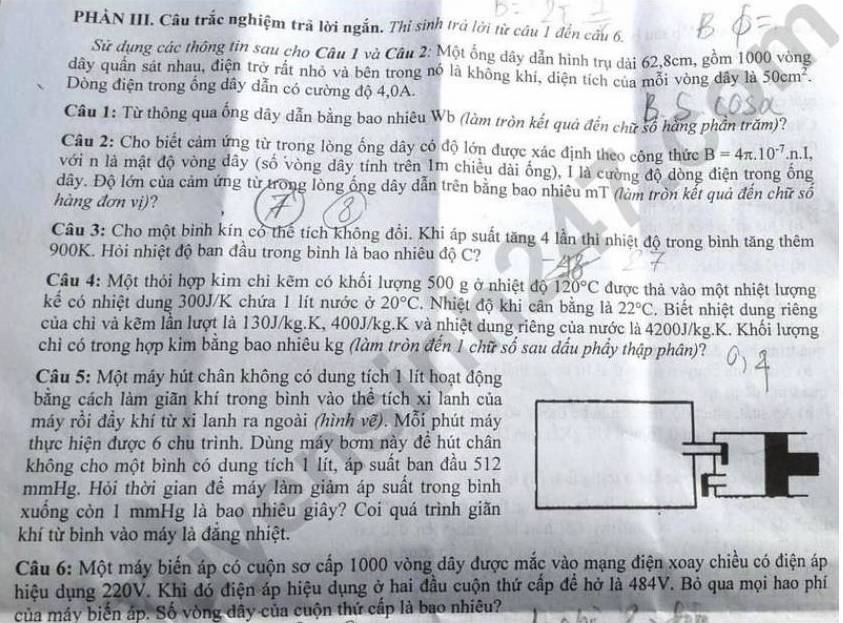 PHẦN III. Câu trắc nghiệm trả lời ngắn. Thí sinh trả lời từ câu 1 đến câu 6.
Sử dụng các thông tin sau cho Câu 1 và Câu 2: Một ống dây dẫn hình trụ dài 62,8cm, gồm 1000 vòng
dây quấn sát nhau, điện trở rất nhỏ và bên trong nó là không khí, diện tích của mỗi vòng dây là 50cm².
Dòng điện trong ống dây dẫn có cường độ 4,0A.
B.S cosα
Câu 1: Từ thông qua ống dây dẫn bằng bao nhiêu Wb (làm tròn kết quả đến chữ số hàng phần trăm)?
Câu 2: Cho biết cảm ứng từ trong lòng ống dây có độ lớn được xác định theo công thức B = 4π.10⁻⁷.n.I,
với n là mật độ vòng dây (số vòng dây tính trên 1m chiều dài ống), I là cường độ dòng điện trong ống
dây. Độ lớn của cảm ứng từ trong lòng ống dây dẫn trên bằng bao nhiêu mT (làm tròn kết quả đến chữ số
hàng đơn vị)?
7 8
Câu 3: Cho một bình kín có thể tích không đổi. Khi áp suất tăng 4 lần thì nhiệt độ trong bình tăng thêm
900K. Hỏi nhiệt độ ban đầu trong bình là bao nhiêu độ C?
27
Câu 4: Một thỏi hợp kim chì kẽm có khối lượng 500 g ở nhiệt độ 120°C được thả vào một nhiệt lượng
kế có nhiệt dung 300J/K chứa 1 lít nước ở 20°C. Nhiệt độ khi cân bằng là 22°C. Biết nhiệt dung riêng
của chì và kẽm lần lượt là 130J/kg.K, 400J/kg.K và nhiệt dung riêng của nước là 4200J/kg.K. Khối lượng
chì có trong hợp kim bằng bao nhiêu kg (làm tròn đến 1 chữ số sau dấu phẩy thập phân)?
0,4
Câu 5: Một máy hút chân không có dung tích 1 lít hoạt động
bằng cách làm giãn khí trong bình vào thể tích xi lanh của
máy rồi đẩy khí từ xi lanh ra ngoài (hình vẽ). Mỗi phút máy
thực hiện được 6 chu trình. Dùng máy bơm này để hút chân
không cho một bình có dung tích 1 lít, áp suất ban đầu 512
mmHg. Hỏi thời gian để máy làm giảm áp suất trong bình
xuống còn 1 mmHg là bao nhiêu giây? Coi quá trình giãn
khí từ bình vào máy là đẳng nhiệt.
Câu 6: Một máy biến áp có cuộn sơ cấp 1000 vòng dây được mắc vào mạng điện xoay chiều có điện áp
hiệu dụng 220V. Khi đó điện áp hiệu dụng ở hai đầu cuộn thứ cấp để hở là 484V. Bỏ qua mọi hao phí
của máy biến áp. Số vòng dây của cuộn thứ cấp là bao nhiêu?